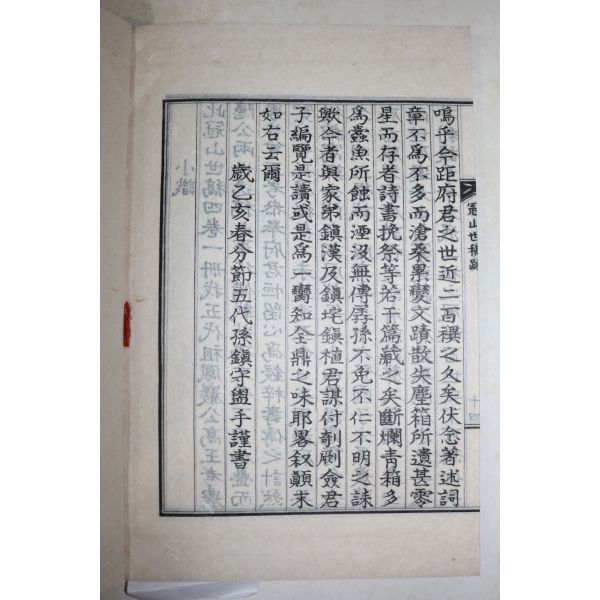 嗚乎今距府君之世近二百禩之久矣伏念著述詞
章不爲不多而滄桑累變文蹟散失塵箱所遺甚零
星而存者詩書挽祭等若干篇藏之矣斷爛靑箱多
爲蠹魚所蝕而湮沒無傳孱孫不免不仁不明之誅
歟今者與家弟鎭漢及鎭垞鎭植君謀付剞劂僉君
子編覽是讀或是爲一臠知全鼎之味耶畧叙顚末
如右云爾
歲乙亥春分節五代孫鎭守盥手謹書
冠山世稿跋
十四